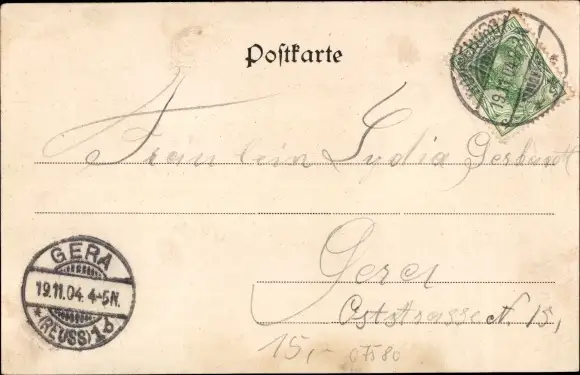 Postkarte
19.11.04
Fräulein Lydia Gerhardt
Gera
Oststrasse N. 15,
15,- 07580
GERA
19.11.04. 4-5N.
*(REUSS)1b